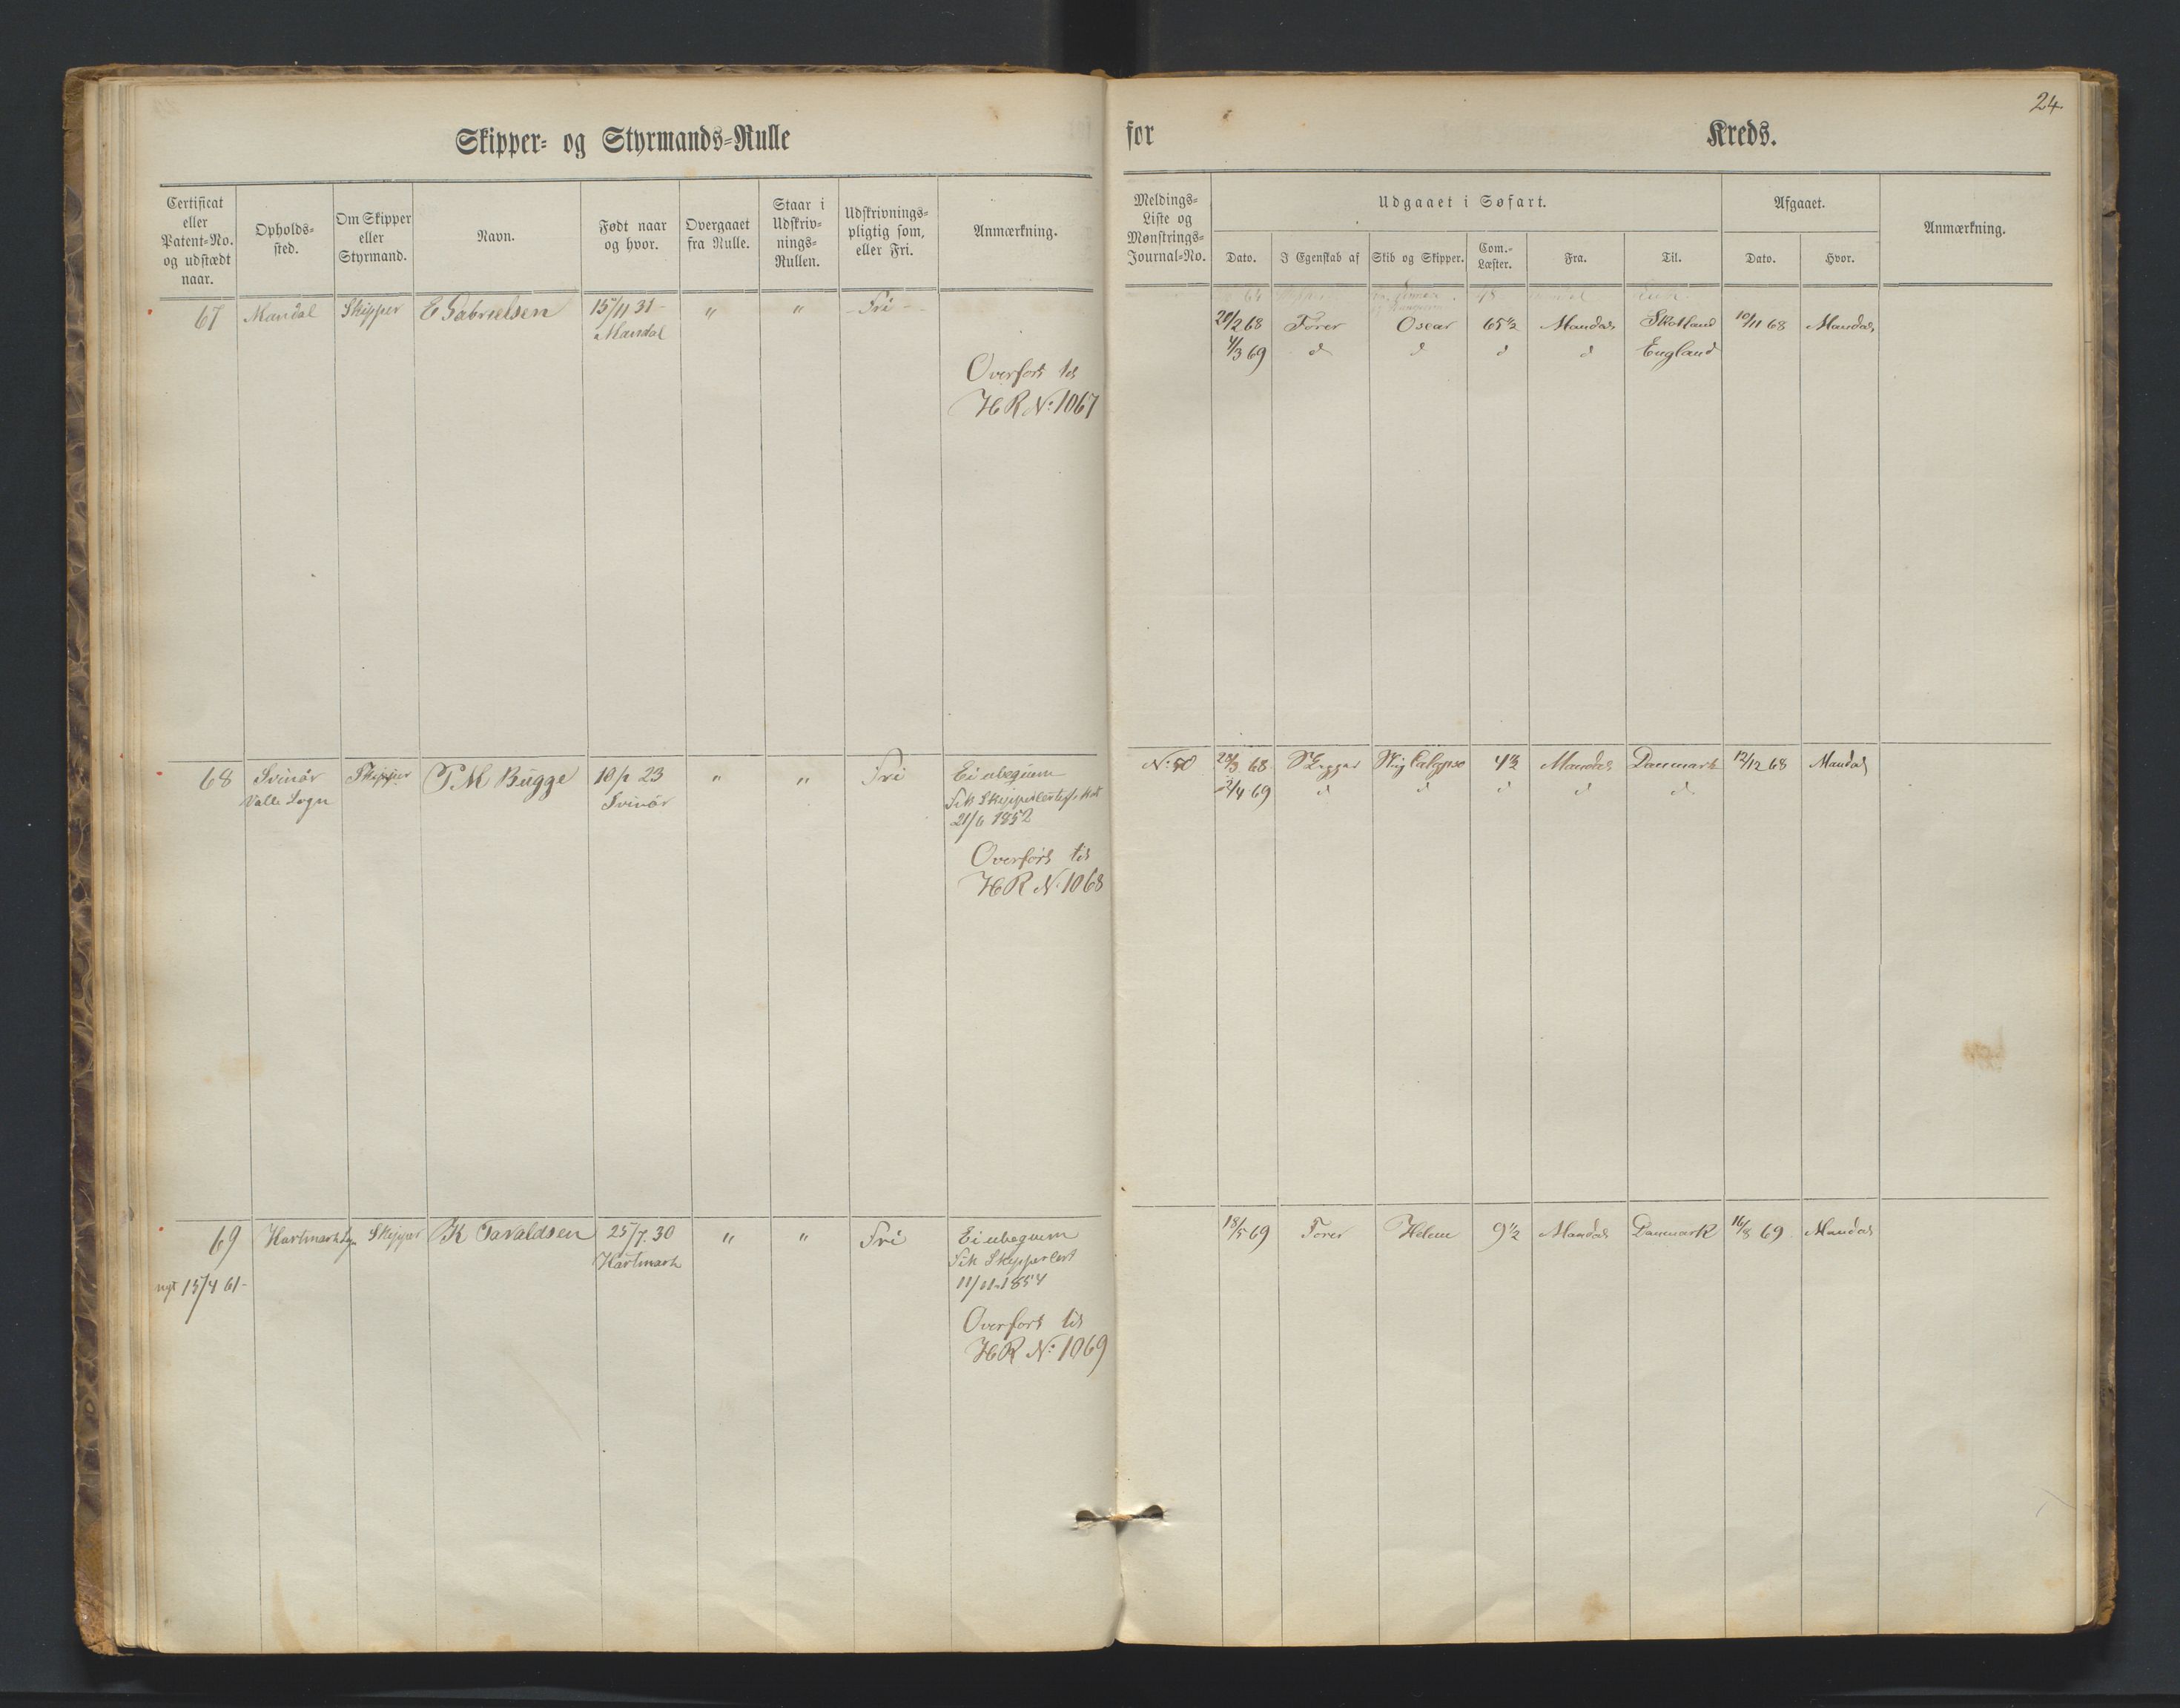 24
Skipper- og Styrmands-Rulle
for Kreds.
Certificat eller Patent-No. og udstædt naar.
Opholds-sted.
Om Skipper eller Styrmand.
Navn.
Født naar og hvor.
Overgaaet fra Rulle.
Staar i Udskriv-nings-Rullen.
Udskrivnings-pligtig som, eller Fri.
Anmærkning.
Meldings-Liste og Mønstrings-Journal-No.
Udgaaet i Søfart.
Dato.
I Egenskab af
Skib og Skipper.
Com.-Læster.
Fra.
Til.
Afgaaet.
Dato.
Hvor.
Anmærkning.
67 Mandal Skipper E Gabrielsen 15/11 31 - " " Fri -
Mandal
Overført til
HR No: 1067
20/2 68 Fører Oscar 65 1/2 Mandal Skotland 10/11 68 Mandal
4/3 69 d d d d England
68 Svinör Skipper T M Bugge 10/ 23 " " Fri Ei ubequem
Valle Sogn Svinör
Fik Skippercertif.
21/6 1852
Overført til
HR No. 1068
No. 50 68 Calypso Mandal Danmark 12/12 68 Mandal
/4 69 d d d d d
69 Hartmark Sogn Skipper K Tavaldsen 25/7. 30 " " Fri Ei ubequem
Hartmark
nyt 15/4 61-
Fik Skippercert
11/11 1854
Overført til
HR No: 1069
18/5 69 Fører Helene 9 1/2 Mandal Danmark 16/8 69 Mandal